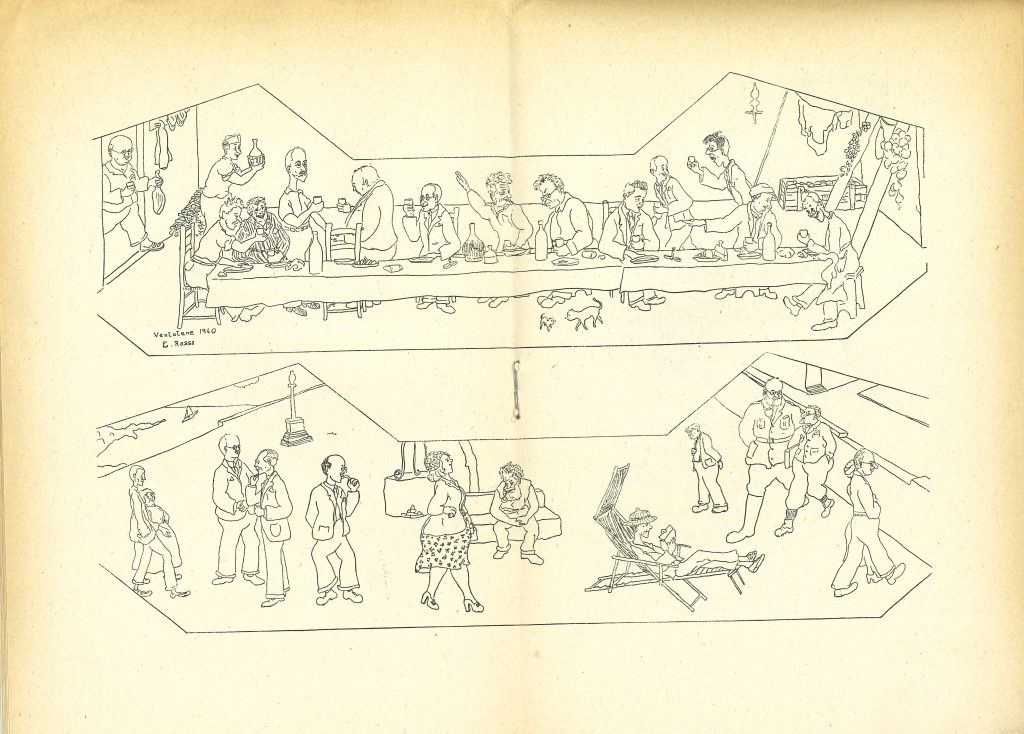 Ventotene 1940
E. Rossi